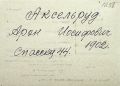 1698
Аксельруд
Арон Иосифович
1902.
Спасская 44.